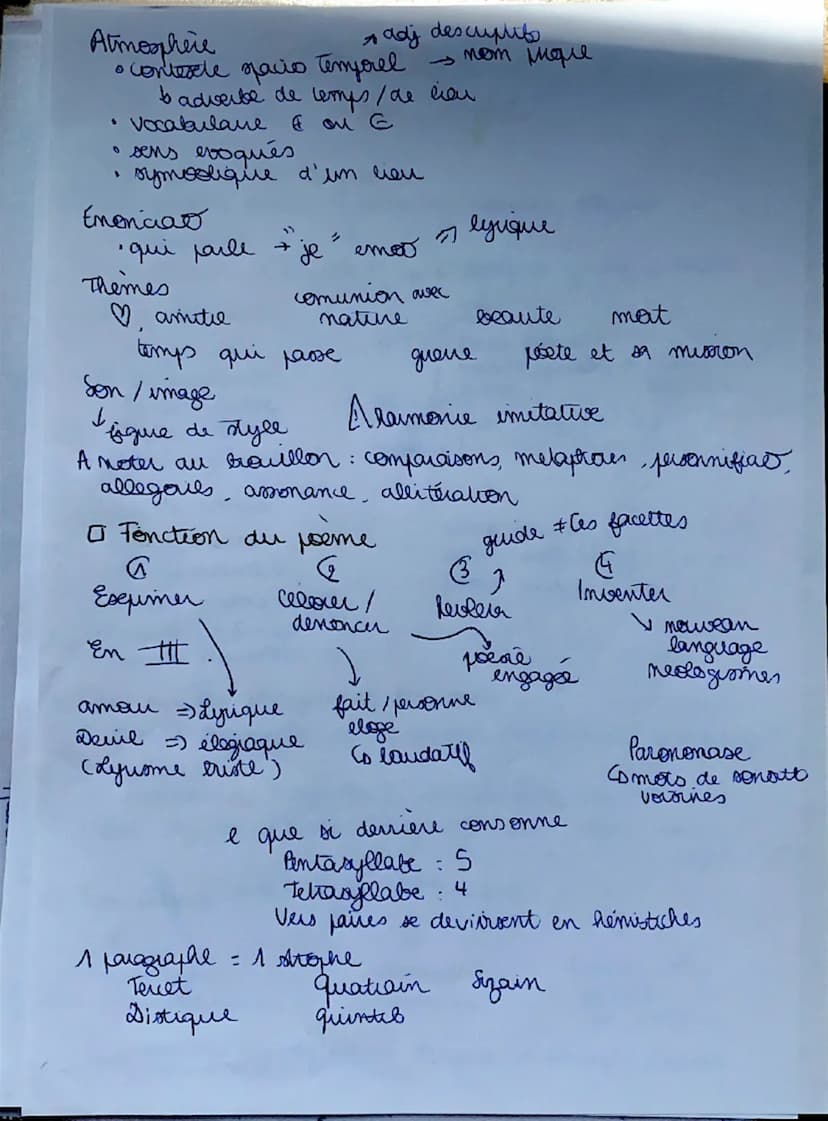 Atmosphère ↗ adj descriptifs
• contexte spatio temporel → nom propre
↳ adverbe de temps / de lieu
• vocabulaire ⊕ ou ⊖
• sens evoqués
• symbolique d'un lieu
Enonciat°
• qui parle → "je" emot° => lyrique
Thèmes
♡, amitie comunion avec nature beaute mort
temps qui passe guerre poète et sa mission
Son / image
↓ figure de style harmonie imitative
A noter au brouillon : comparaisons, metaphores, personnificat°,
allegories, assonance, allitération
□ Fonction du poème guide ≠ les facettes
① ② ③ ④
Exprimer celebrer / denoncer Reveler Inventer
En III poèsie engagée ↘ nouveau language neologismes
amour => Lyrique fait / personne
Deuil => élegiaque eloge
(Lyrisme triste) ↳ laudatif
Parononase
↳ mots de sonorité
voisines
e que si derrière consonne
Pentasyllabe : 5
Tetrasyllabe : 4
Vers paires se devivisent en hémistiches
1 paragraphe = 1 strophe
Tercet Quatrain Sizain
Distique quintil